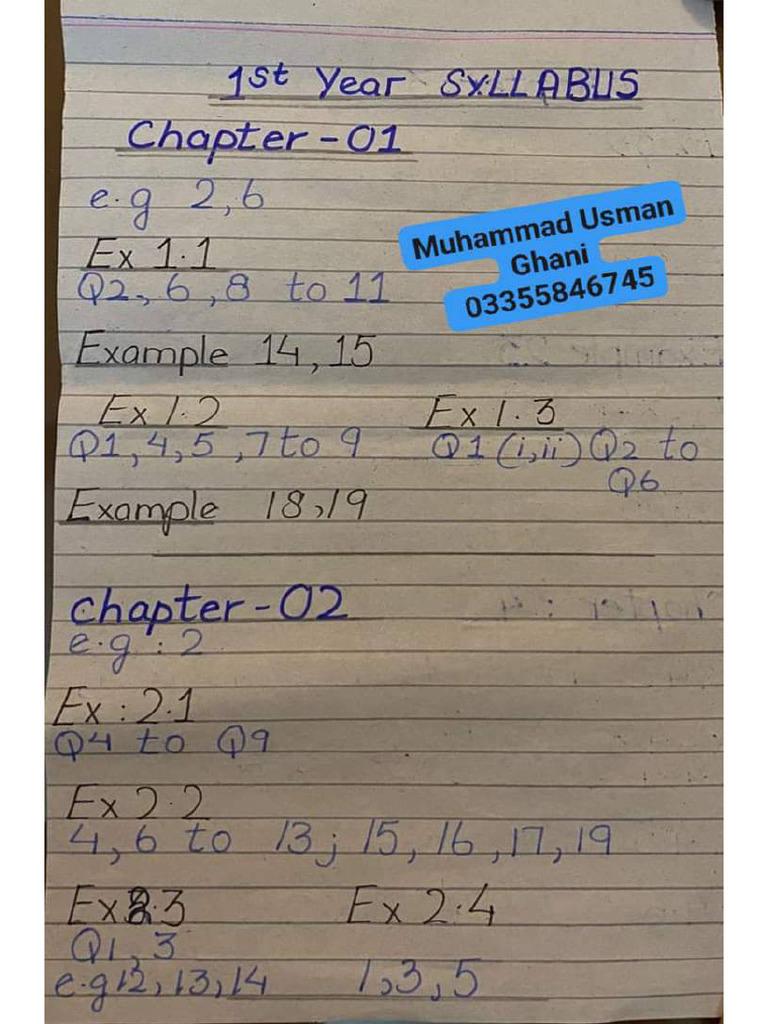 1st Year SYLLABUS
Chapter-01
e.g 2,6
Muhammad Usman
Ghani
03355846745
Ex 1.1
Q2, 6, 8 to 11
Example 14,15
Ex 1.2
Q1,4,5,7 to 9
Ex 1.3
Q1 (i,ii) Q2 to
Q6
Example 18,19
chapter-02
e.g : 2
Ex : 2.1
Q4 to Q9
Ex 2.2
4,6 to 13; 15, 16, 17, 19
Ex 2.3
Q1, 3
e.g 12, 13, 14
Ex 2.4
1,3,5